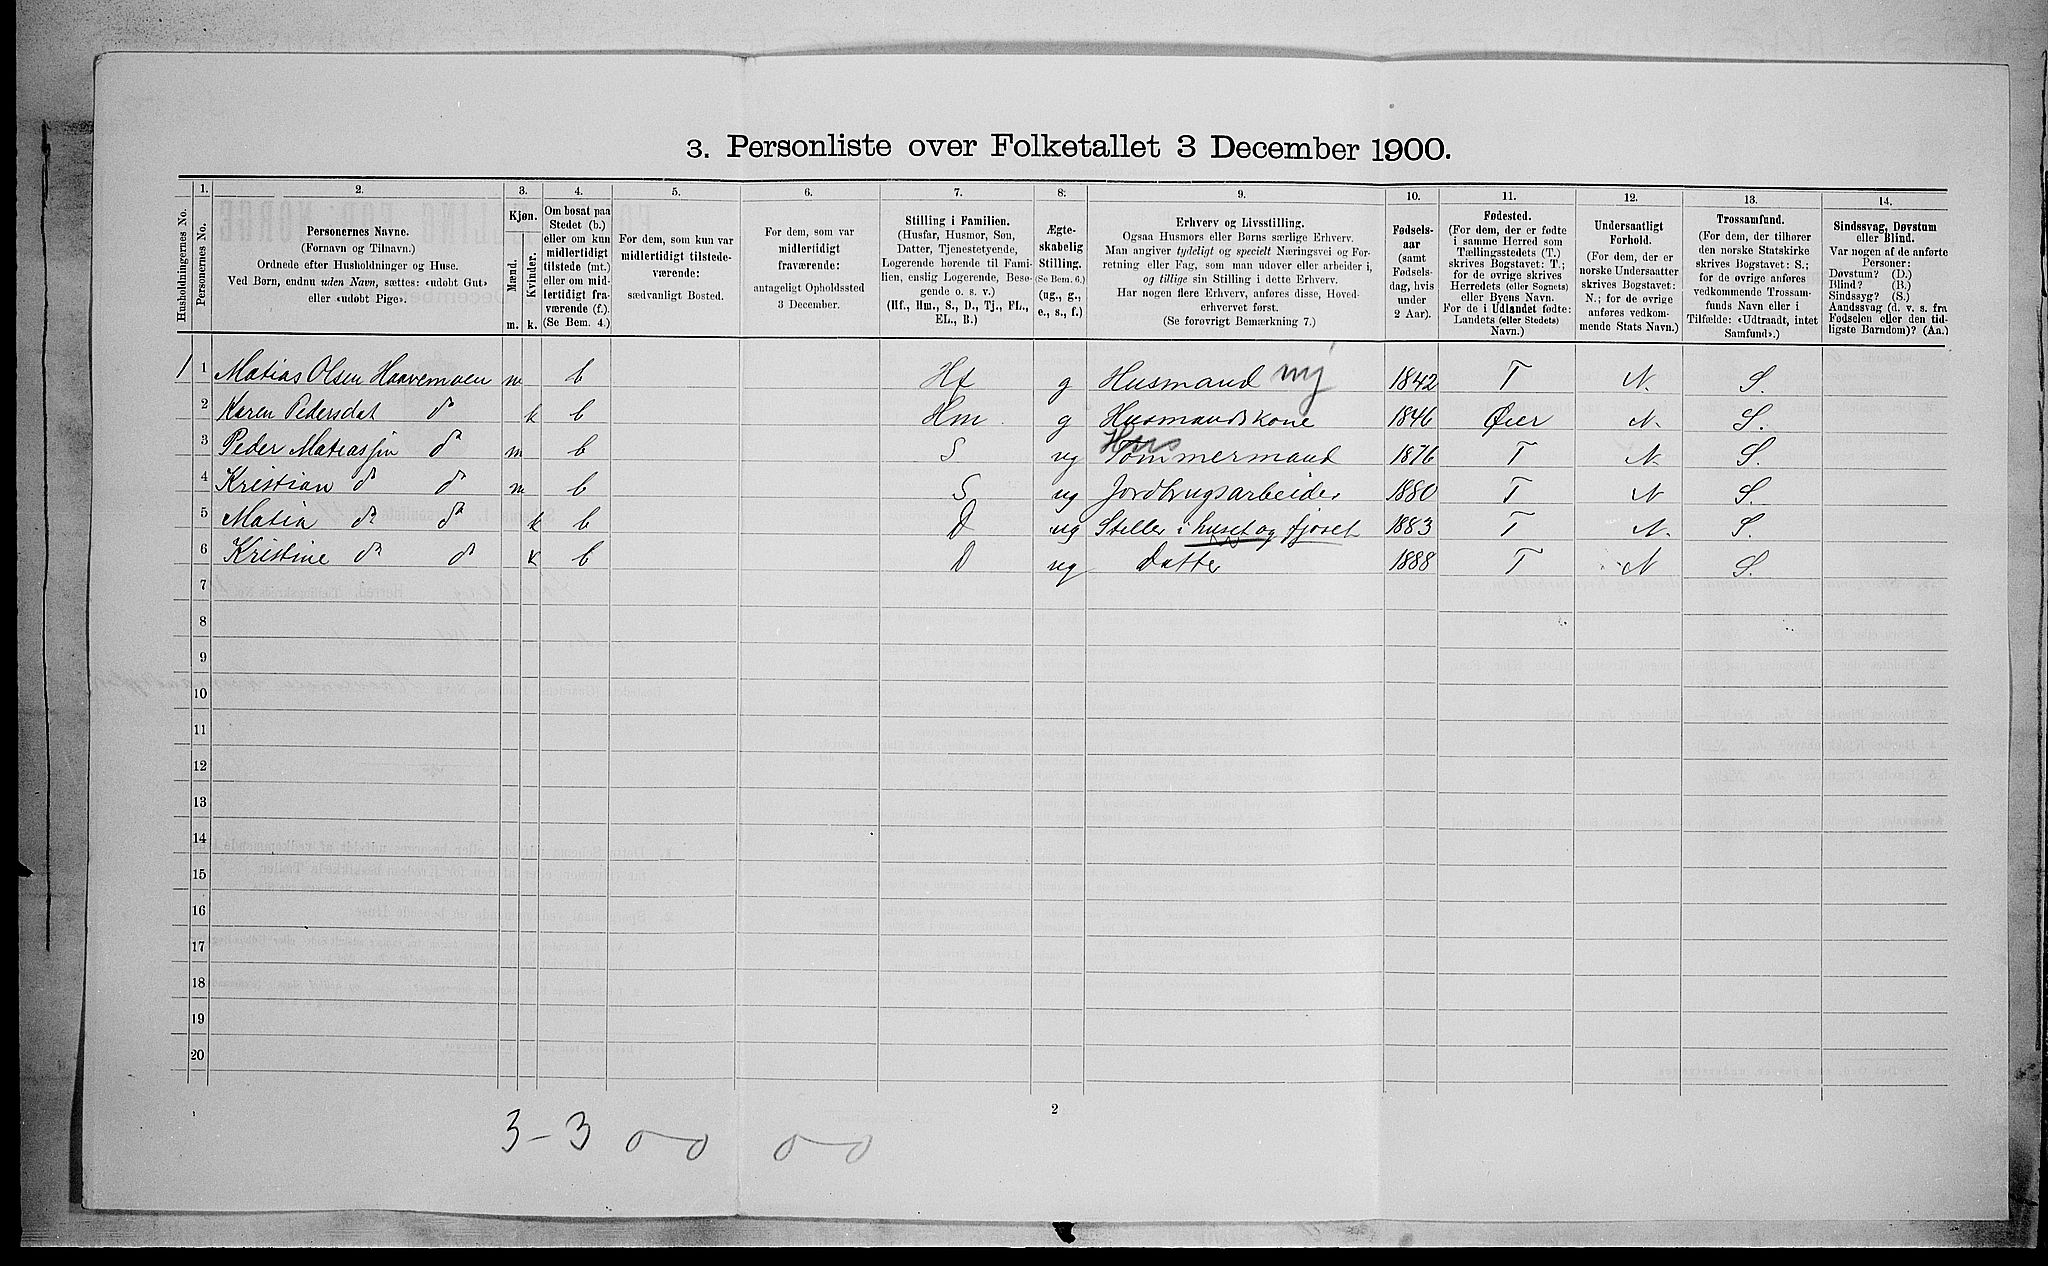 3. Personliste over Folketallet 3 December 1900.
1. 2. 3. 4. 5. 6. 7. 8. 9. 10. 11. 12. 13. 14.
Husholdningernes No.
Personernes No.
Personernes Navne.
(Fornavn og Tilnavn.)
Ordnede efter Husholdninger og Huse.
Ved Børn, endnu uden Navn, sættes: «udøbt Gut»
eller «udøbt Pige».
Kjøn.
Mænd.
Kvinder.
m. k.
Om bosat paa
Stedet (b.)
eller om kun
midlertidigt
tilstede (mt.)
eller om mid-
lertidigt fra-
værende (f.).
(Se Bem. 4.)
For dem, som kun var
midlertidigt tilstede-
værende:
sædvanligt Bosted.
For dem, som var
midlertidigt
fraværende:
antageligt Opholdssted
3 December.
Stilling i Familien.
(Husfar, Husmor, Søn,
Datter, Tjenestetyende,
Logerende hørende til Fami-
lien, enslig Logerende, Besø-
gende o. s. v.)
(Hf., Hm., S., D., Tj., FL.,
EL., B.)
Ægte-
skabelig
Stilling.
(Se Bem. 6.)
(ug., g.,
e., s., f.)
Erhverv og Livsstilling.
Ogsaa Husmors eller Børns særlige Erhverv.
Man angiver tydeligt og specielt Næringsvei og For-
retning eller Fag, som man udøver eller arbeider i,
og tillige sin Stilling i dette Erhverv.
Har nogen flere Erhverv, anføres disse, Hoved-
erhvervet først.
(Se forøvrigt Bemærkning 7.)
Fødsels-
aar
(samt
Fødsels-
dag, hvis
under
2 Aar).
Fødested.
(For dem, der er fødte
i samme Herred som
Tællingsstedets (T.)
skrives Bogstavet: T.;
for de øvrige skrives
Herredets (eller Sognets)
eller Byens Navn.
For de i Udlandet fødte:
Landets (eller Stedets)
Navn.)
Undersaatligt
Forhold.
(For dem, der er
norske Undersaatter
skrives Bogstavet:
N.; for de øvrige
anføres vedkom-
mende Stats Navn.)
Trossamfund.
(For dem, der tilhører
den norske Statskirke
skrives Bogstavet: S.;
for de øvrige anføres
vedkommende Trossam-
funds Navn eller i
Tilfælde: «Udtraadt, intet
Samfund».)
Sindssvag, Døvstum
eller Blind.
Var nogen af de anførte
Personer:
Døvstum? (D.)
Blind? (B.)
Sindssyg? (S.)
Aandssvag (d. v. s. fra
Fødselen eller den tid-
ligste Barndom)? (Aa.)
1 1 Matias Olsen Haavemoen m b Hf g Husmand mj 1842 T N. S.
2 Karen Pedersdat do k b Hm. g Husmandskone 1846 Øier N. S.
3 Peder Matiassen do m b S ug Hus Tømmermand 1876 T N. S.
4 Kristian do do m b S ug Jordbrugsarbeider 1880 T N S.
5 Matia do do k b D ug Steller i huset og fjøset 1883 T N. S.
6 Kristine do do k b D ug Datter 1888 T N S.
7
8
9
10
11
12
13
14
15
16
17
18
19
20
2
3 - 3 0 - 0 0 - 0